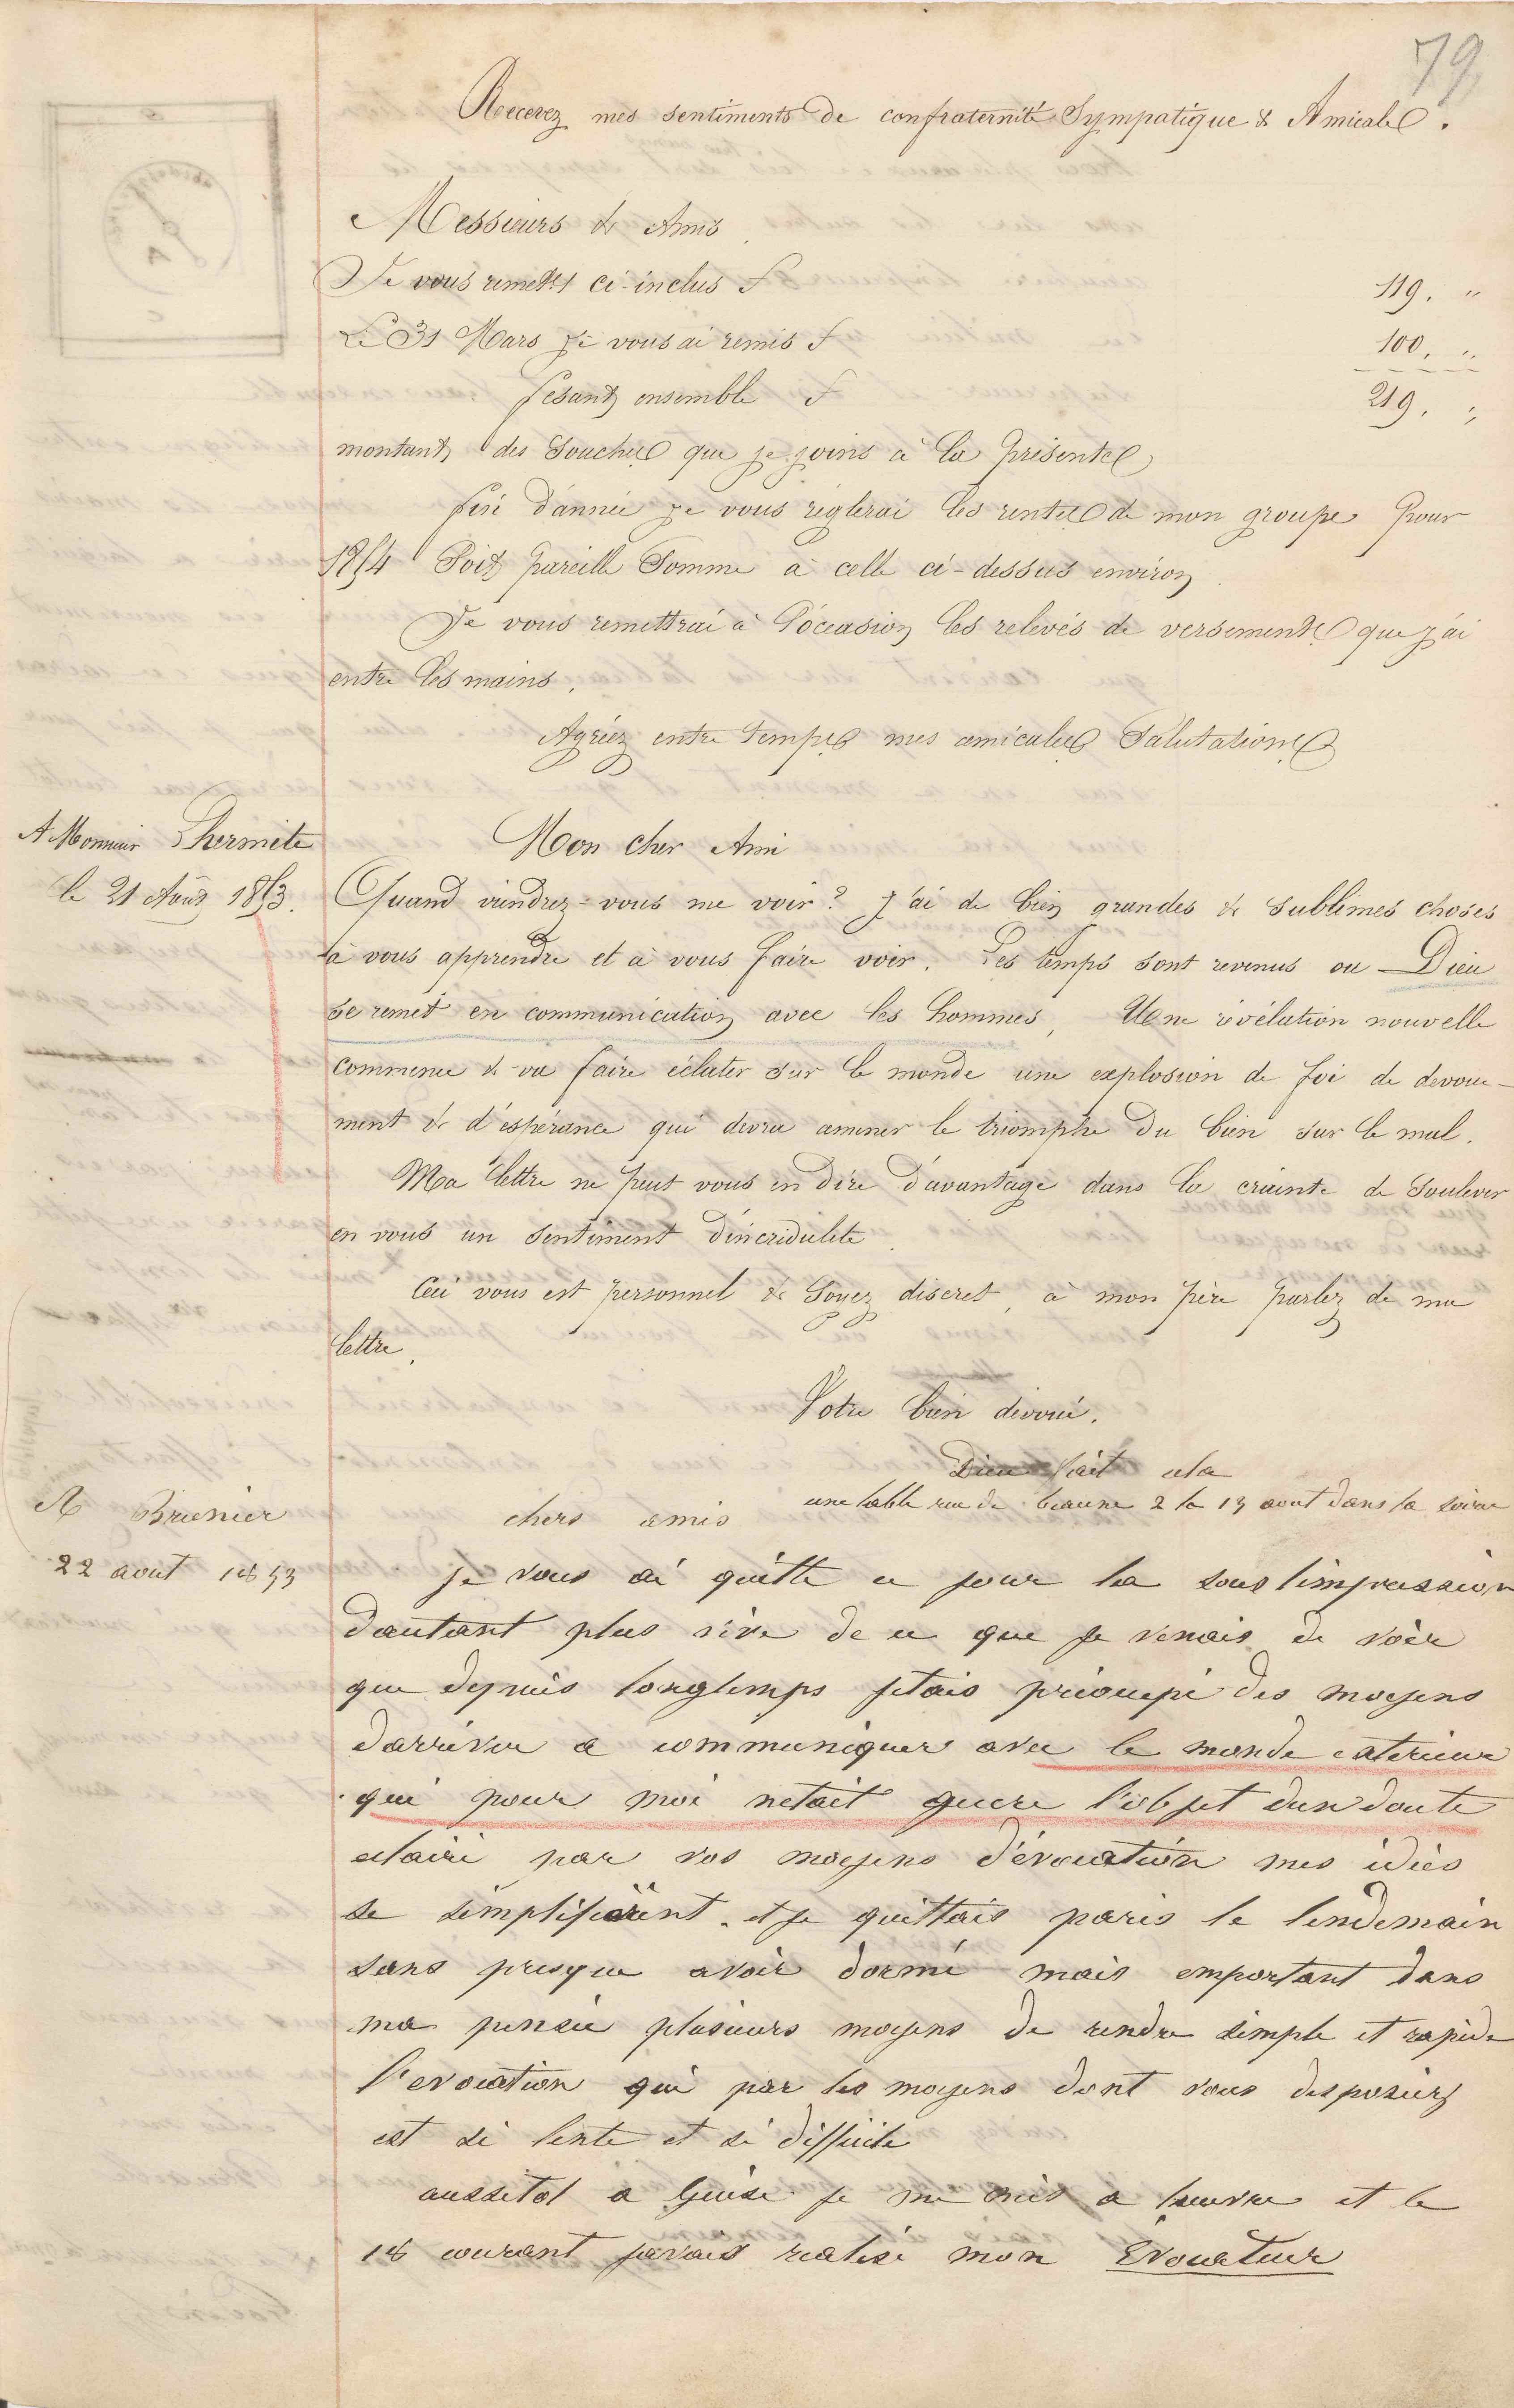 79
Recevez mes sentiments de confraternité Sympatique & Amicale.
Messieurs & Amis
Je vous remets ci-inclus f 119. "
Le 31 Mars je vous ai remis f 100. "
fesant ensemble f 219. "
montant des Souches que je joins à la présente
fin d'année je vous réglerai les rentes de mon groupe pour
1854 Soit pareille Somme à celle ci-dessus environ
Je vous remettrai à l'occasion les relevés de versements que j'ai
entre les mains.
Agréez entre temps mes amicales Salutations
A Monsieur Lhermite
le 21 Août 1853.
Mon cher Ami
Quand viendrez-vous me voir? J'ai de bien grandes & sublimes choses
à vous apprendre et à vous faire voir. Les temps sont revenus ou Dieu
se remet en communication avec les hommes, Une révélation nouvelle
commence & va faire éclater sur le monde une explosion de foi de devoue-
ment & d'espérance qui devra amener le triomphe du bien sur le mal.
Ma lettre ne peut vous en dire d'avantage dans la crainte de soulever
en vous un sentiment d'incrédulité
Ceci vous est personnel & Soyez discret, à mon père parlez de ma
lettre.
Votre bien dévoué.
Dieu fait cela
une table rue de beaune 2 le 13 aout dans la soirée
A Brunier
22 aout 1853
chers amis
je vous ai quitté ce jour la sous l'impression
dautant plus vive de ce que je venais de voir
que depuis longtemps jetais préoccupé des moyens
darriver a communiquer avec le monde exterieur
qui pour moi netait guere l'objet dun doute
eclairé par vos moyens d'évocation mes idées
se simplifièrent. et je quittais paris le lendemain
sans presque avoir dormi mais emportant dans
ma pensée plusieurs moyens de rendre simple et rapide
l'evocation qui par les moyens dont vous disposiez
est si lente et si difficile
aussitot a Guise je me mis a l'œuvre et le
18 courant javais realisé mon Evocateur